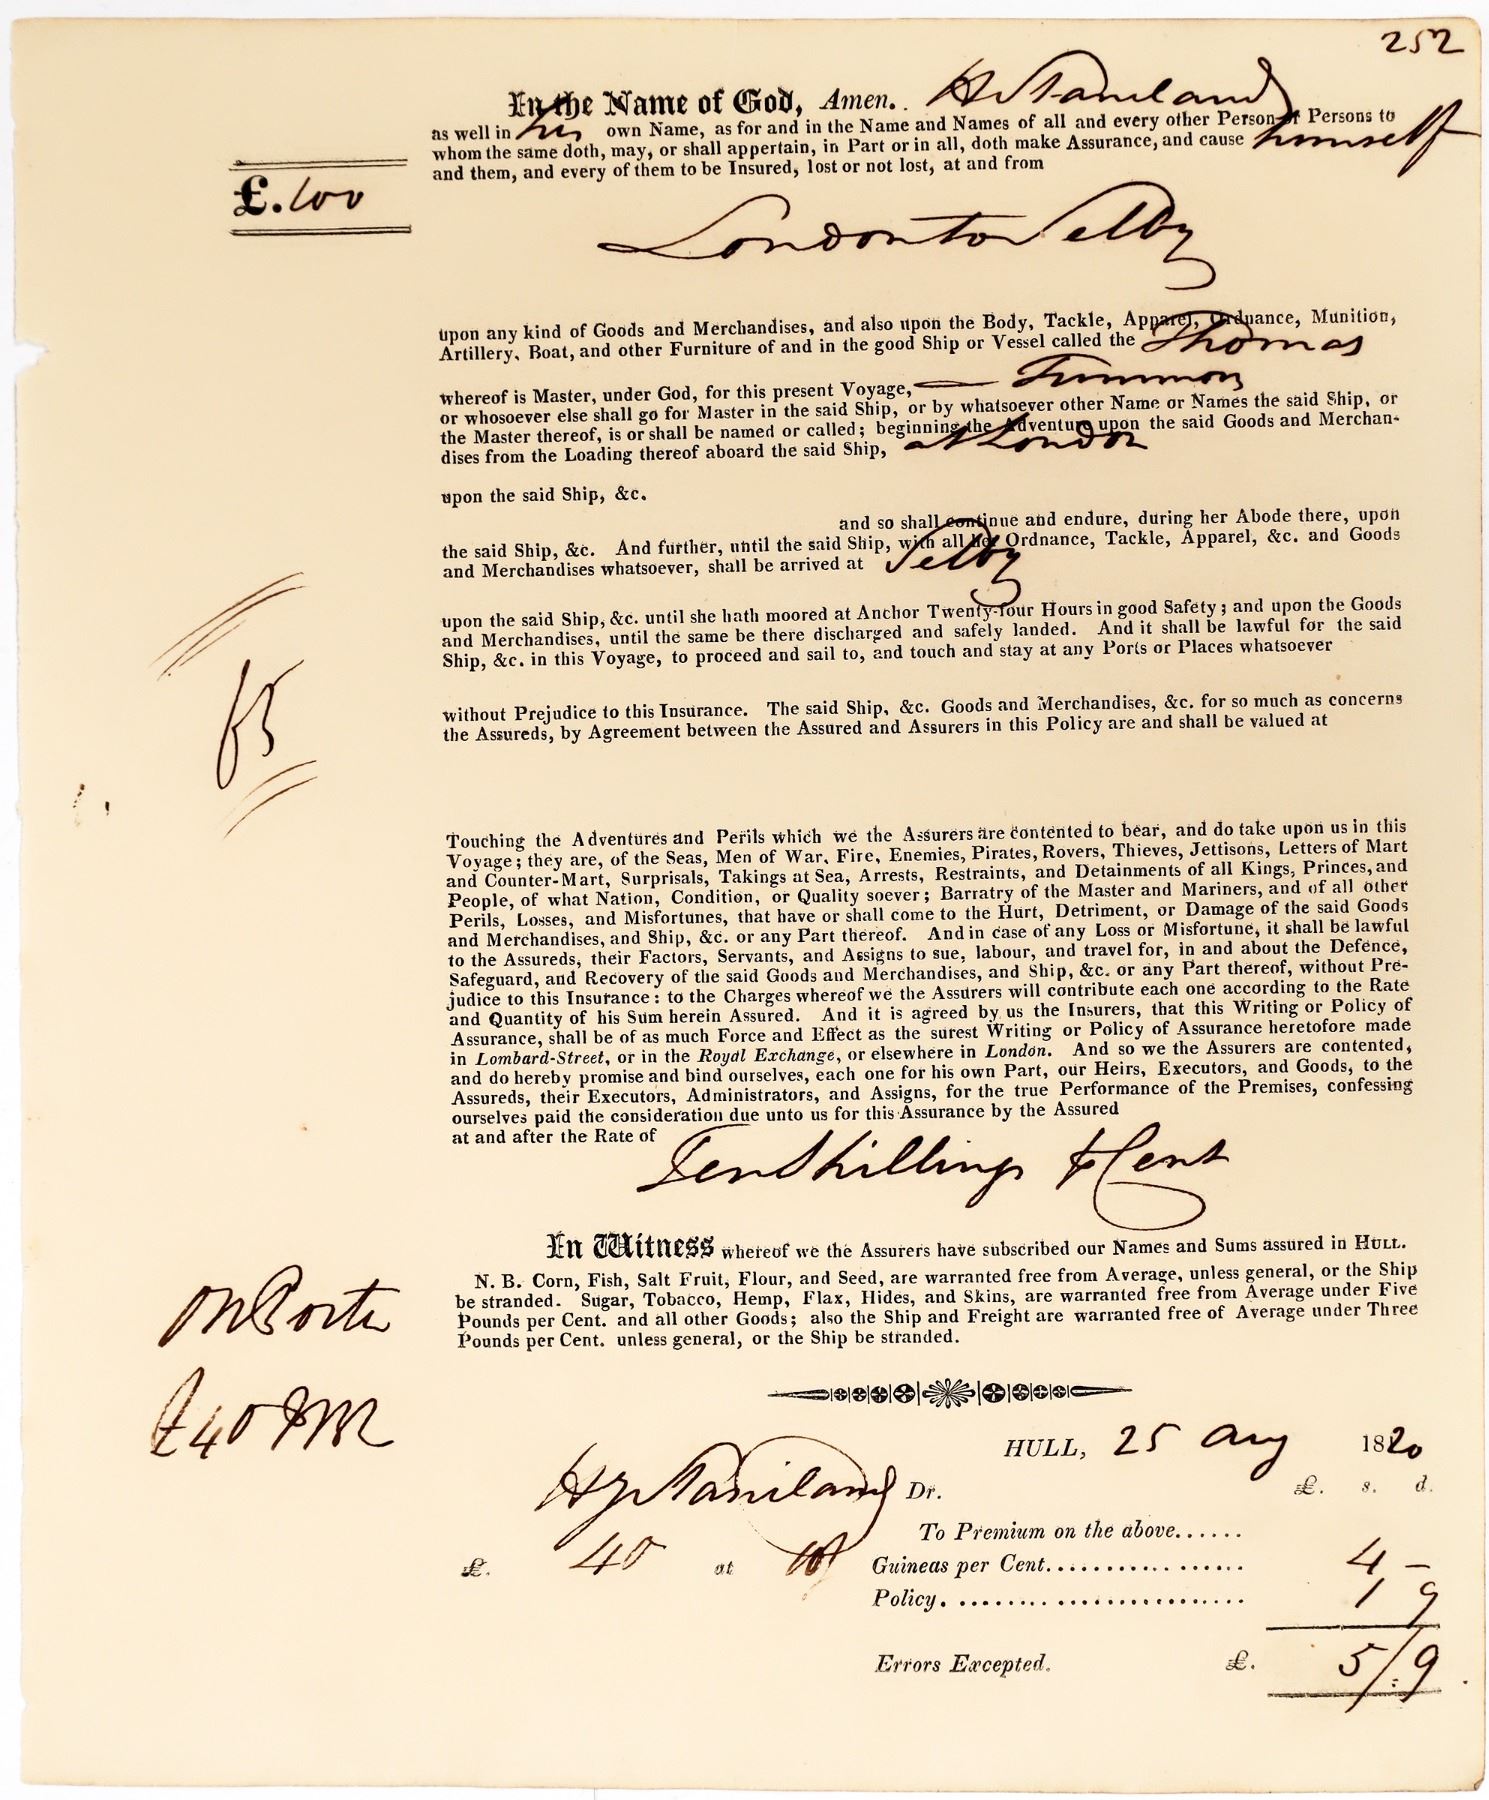 252
In the Name of God, Amen. H Staniland
as well in his own Name, as for and in the Name and Names of all and every other Person or Persons to
whom the same doth, may, or shall appertain, in Part or in all, doth make Assurance, and cause himself
and them, and every of them to be Insured, lost or not lost, at and from
£. 100
London to Selby
upon any kind of Goods and Merchandises, and also upon the Body, Tackle, Apparel, Ordnance, Munition,
Artillery, Boat, and other Furniture of and in the good Ship or Vessel called the Thomas
whereof is Master, under God, for this present Voyage, —
or whosoever else shall go for Master in the said Ship, or by whatsoever other Name or Names the said Ship, or
the Master thereof, is or shall be named or called; beginning the Adventure upon the said Goods and Merchan-
dises from the Loading thereof aboard the said Ship, at London
upon the said Ship, &c.
and so shall continue and endure, during her Abode there, upon
the said Ship, &c. And further, until the said Ship, with all her Ordnance, Tackle, Apparel, &c. and Goods
and Merchandises whatsoever, shall be arrived at Selby
upon the said Ship, &c. until she hath moored at Anchor Twenty-four Hours in good Safety; and upon the Goods
and Merchandises, until the same be there discharged and safely landed. And it shall be lawful for the said
Ship, &c. in this Voyage, to proceed and sail to, and touch and stay at any Ports or Places whatsoever
65
without Prejudice to this Insurance. The said Ship, &c. Goods and Merchandises, &c. for so much as concerns
the Assureds, by Agreement between the Assured and Assurers in this Policy are and shall be valued at
Touching the Adventures and Perils which we the Assurers are contented to bear, and do take upon us in this
Voyage; they are, of the Seas, Men of War, Fire, Enemies, Pirates, Rovers, Thieves, Jettisons, Letters of Mart
and Counter-Mart, Surprisals, Takings at Sea, Arrests, Restraints, and Detainments of all Kings, Princes, and
People, of what Nation, Condition, or Quality soever; Barratry of the Master and Mariners, and of all other
Perils, Losses, and Misfortunes, that have or shall come to the Hurt, Detriment, or Damage of the said Goods
and Merchandises, and Ship, &c. or any Part thereof. And in case of any Loss or Misfortune, it shall be lawful
to the Assureds, their Factors, Servants, and Assigns to sue, labour, and travel for, in and about the Defence,
Safeguard, and Recovery of the said Goods and Merchandises, and Ship, &c. or any Part thereof, without Pre-
judice to this Insurance: to the Charges whereof we the Assurers will contribute each one according to the Rate
and Quantity of his Sum herein Assured. And it is agreed by us the Insurers, that this Writing or Policy of
Assurance, shall be of as much Force and Effect as the surest Writing or Policy of Assurance heretofore made
in Lombard-Street, or in the Royal Exchange, or elsewhere in London. And so we the Assurers are contented,
and do hereby promise and bind ourselves, each one for his own Part, our Heirs, Executors, and Goods, to the
Assureds, their Executors, Administrators, and Assigns, for the true Performance of the Premises, confessing
ourselves paid the consideration due unto us for this Assurance by the Assured
at and after the Rate of Ten Shillings Cent
In Witness whereof we the Assurers have subscribed our Names and Sums assured in HULL.
N. B. Corn, Fish, Salt Fruit, Flour, and Seed, are warranted free from Average, unless general, or the Ship
be stranded. Sugar, Tobacco, Hemp, Flax, Hides, and Skins, are warranted free from Average under Five
Pounds per Cent. and all other Goods; also the Ship and Freight are warranted free of Average under Three
Pounds per Cent. unless general, or the Ship be stranded.
On Porter
£40
HULL, 25 Aug 1820
Hy Staniland Dr. £. s. d.
To Premium on the above......
£. 40 at 10/ Guineas per Cent.................. 4 –
Policy. ........................ 1 9
Errors Excepted. £. 5/.9